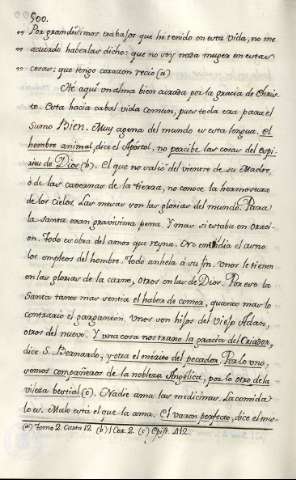 500.
Por grandísimos trabajos que he tenido en esta vida, no me
acuerdo haberlas dicho: que no soy nada muger en estas
cosas; que tengo corazon recio (a)
He aqui un alma bien curada por la gracia de Chris-
to. Esta hacia cabal vida comun, pues toda era para el
sumo Bien. Muy agena del mundo es esta lengua. el
hombre animal, dice el Apóstol, no percibe las cosas del Espi-
ritu de Dios (b). El que no salió del vientre de su Madre,
ó de las cavernas de la tierra, no conoce la hermosura
de los Cielos. Las suyas son las glorias del mundo. Para
la santa eran gravisima pena. Y mas si estaba en Oraci-
on. Todo es obra del amor que reyna. la carne
los empleos del hombre. Todo anhela á su fin. Unos le tienen
en las glorias de la carne, otros en las de Dios. Por eso la
Santa tanto mas sentia el haber de comer, quanto mas lo
contrario el Unos son hijos del Viejo Adan,
otros del nuevo. Y una cosa nos trajo la gracia del Criador,
dice S. Bernardo, y otra el mérito del pecador. Por lo uno,
somos compañeros de la nobleza Angélica, por lo otro de la
vileza bestial (c). Nadie ama las medicinas. La comida
lo es. Malo está el que la ama. El varon perfecto, dice el mis-
(a) Tomo 2. Carta 12. (b) 1 Cor. 2. (c) Epist. 412.